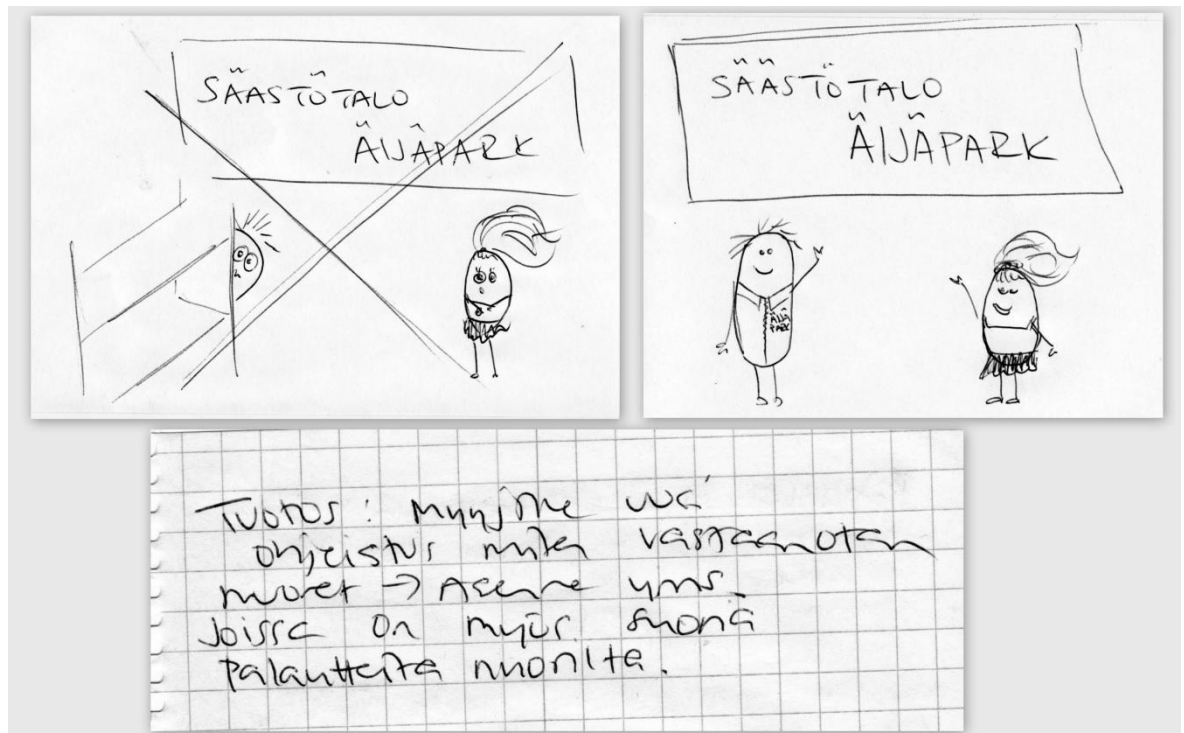 SÄÄSTÖTALO
ÄIJÄPARK
SÄÄSTÖTALO
ÄIJÄPARK
ÄIJÄ
PARK
Tuotos: myyjille uusi
ohjeistus miten vastaanotan
nuoret → Asenne yms.
Joissa on myös suoria
Palautteita nuorilta.